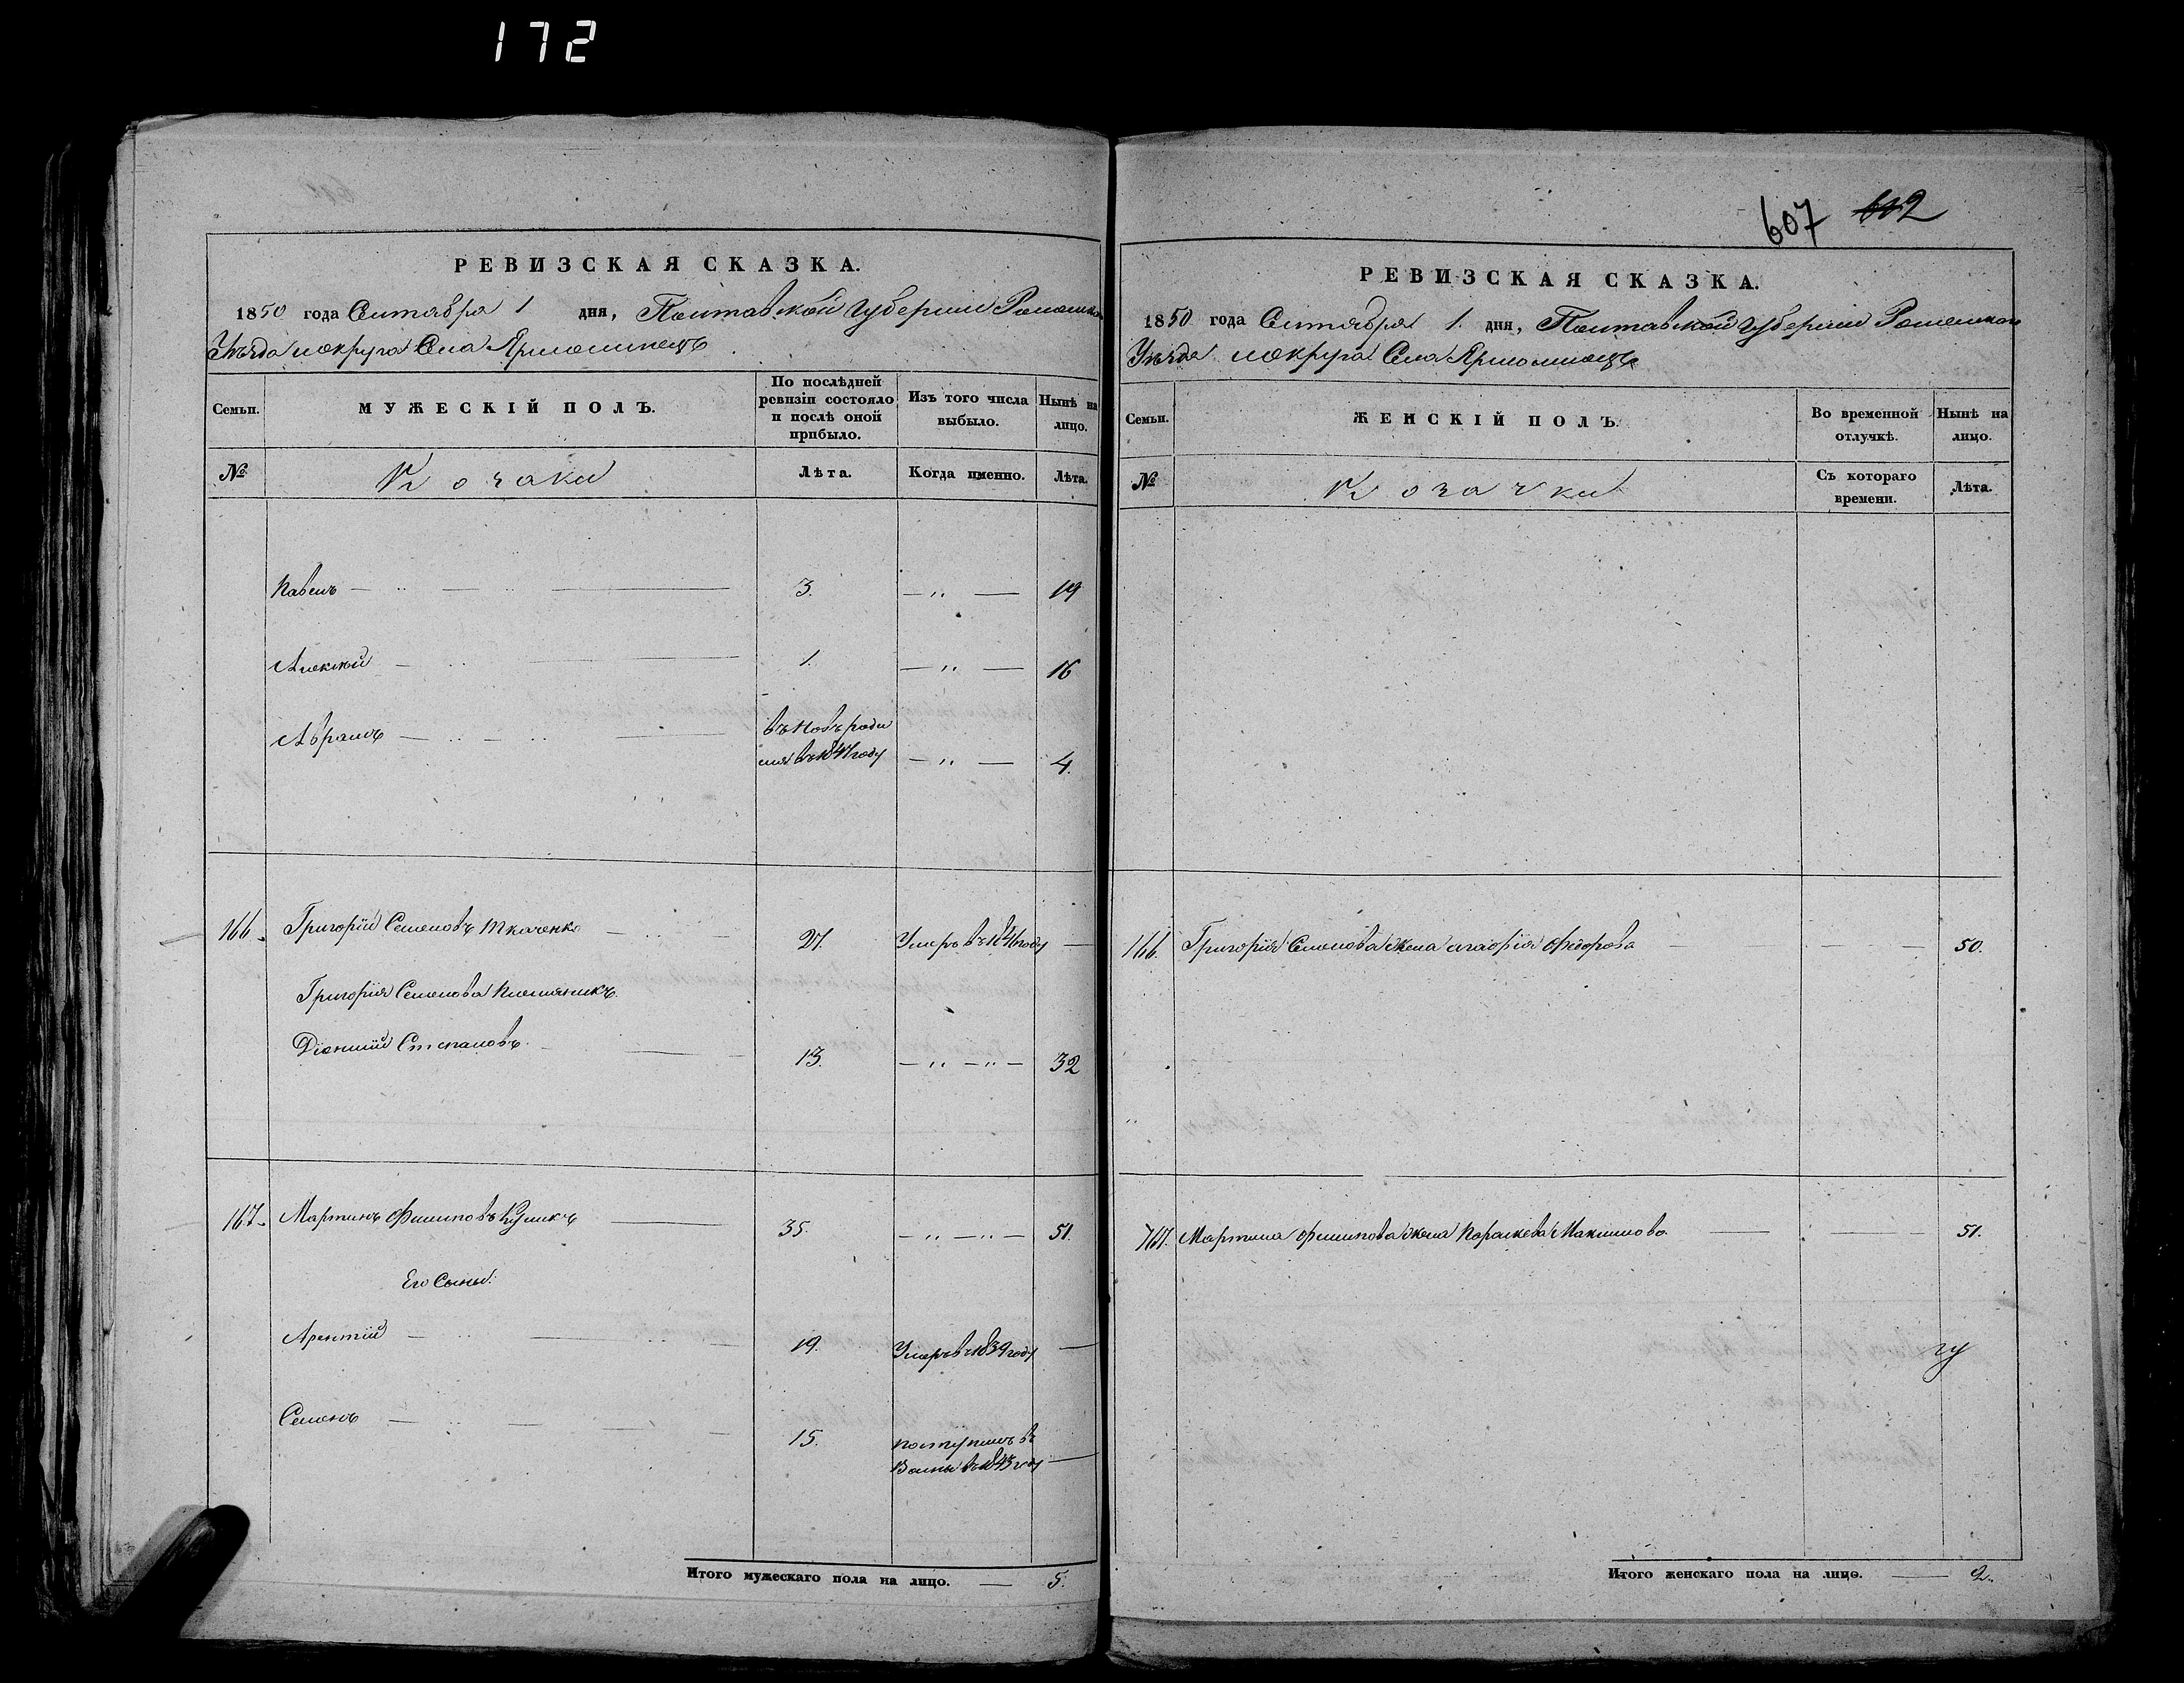 172
РЕВИЗСКАЯ СКАЗКА.
1850 года Сентября 1 дня, Полтавской Губернiи Роменска
Уѣзда и округа Села Ярмолинецъ
Семьи.
МУЖЕСКIЙ ПОЛЪ.
По послѣдней ревизiи состояло и послѣ оной прибыло.
Изъ того числа выбыло.
Нынѣ на лицо.
№
Козаки
Лѣта.
Когда именно.
Лѣта.
Павелъ 3. — " — 19
Алексѣй 1. — " — 16
Аврамъ въ новѣ роди
лся въ 1847 году — " — 4.
166. Григорiй Семеновъ Ткаченко 27. Умеръ въ 1846 году —
Григорiя Семенова племяникъ
Дiонисiй Степановъ 13. — " — " — 32
167. Мартинъ Филиповъ Куликъ 35. — " — " — 51.
Его Сыны:
Арентiй 19. Умеръ въ 1839 году —
Семенъ 15. поступилъ въ
Воины въ 1843 году —
Итого мужескаго пола на лицо. — 5.
607 602
РЕВИЗСКАЯ СКАЗКА.
1850 года Сентября 1. дня, Полтавской Губернiи Роменскаго
Уѣзда и округа Села Ярмолинецъ
Семьи.
ЖЕНСКIЙ ПОЛЪ.
Во временной отлучкѣ.
Нынѣ на лицо.
№
Козачки
Съ котораго времени.
Лѣта.
166. Григорiя Семенова жена Агафiя Федорова — 50.
167. Мартина Филипова жена Параскева Максимова — 51.
Итого женскаго пола на лицо. — 2.